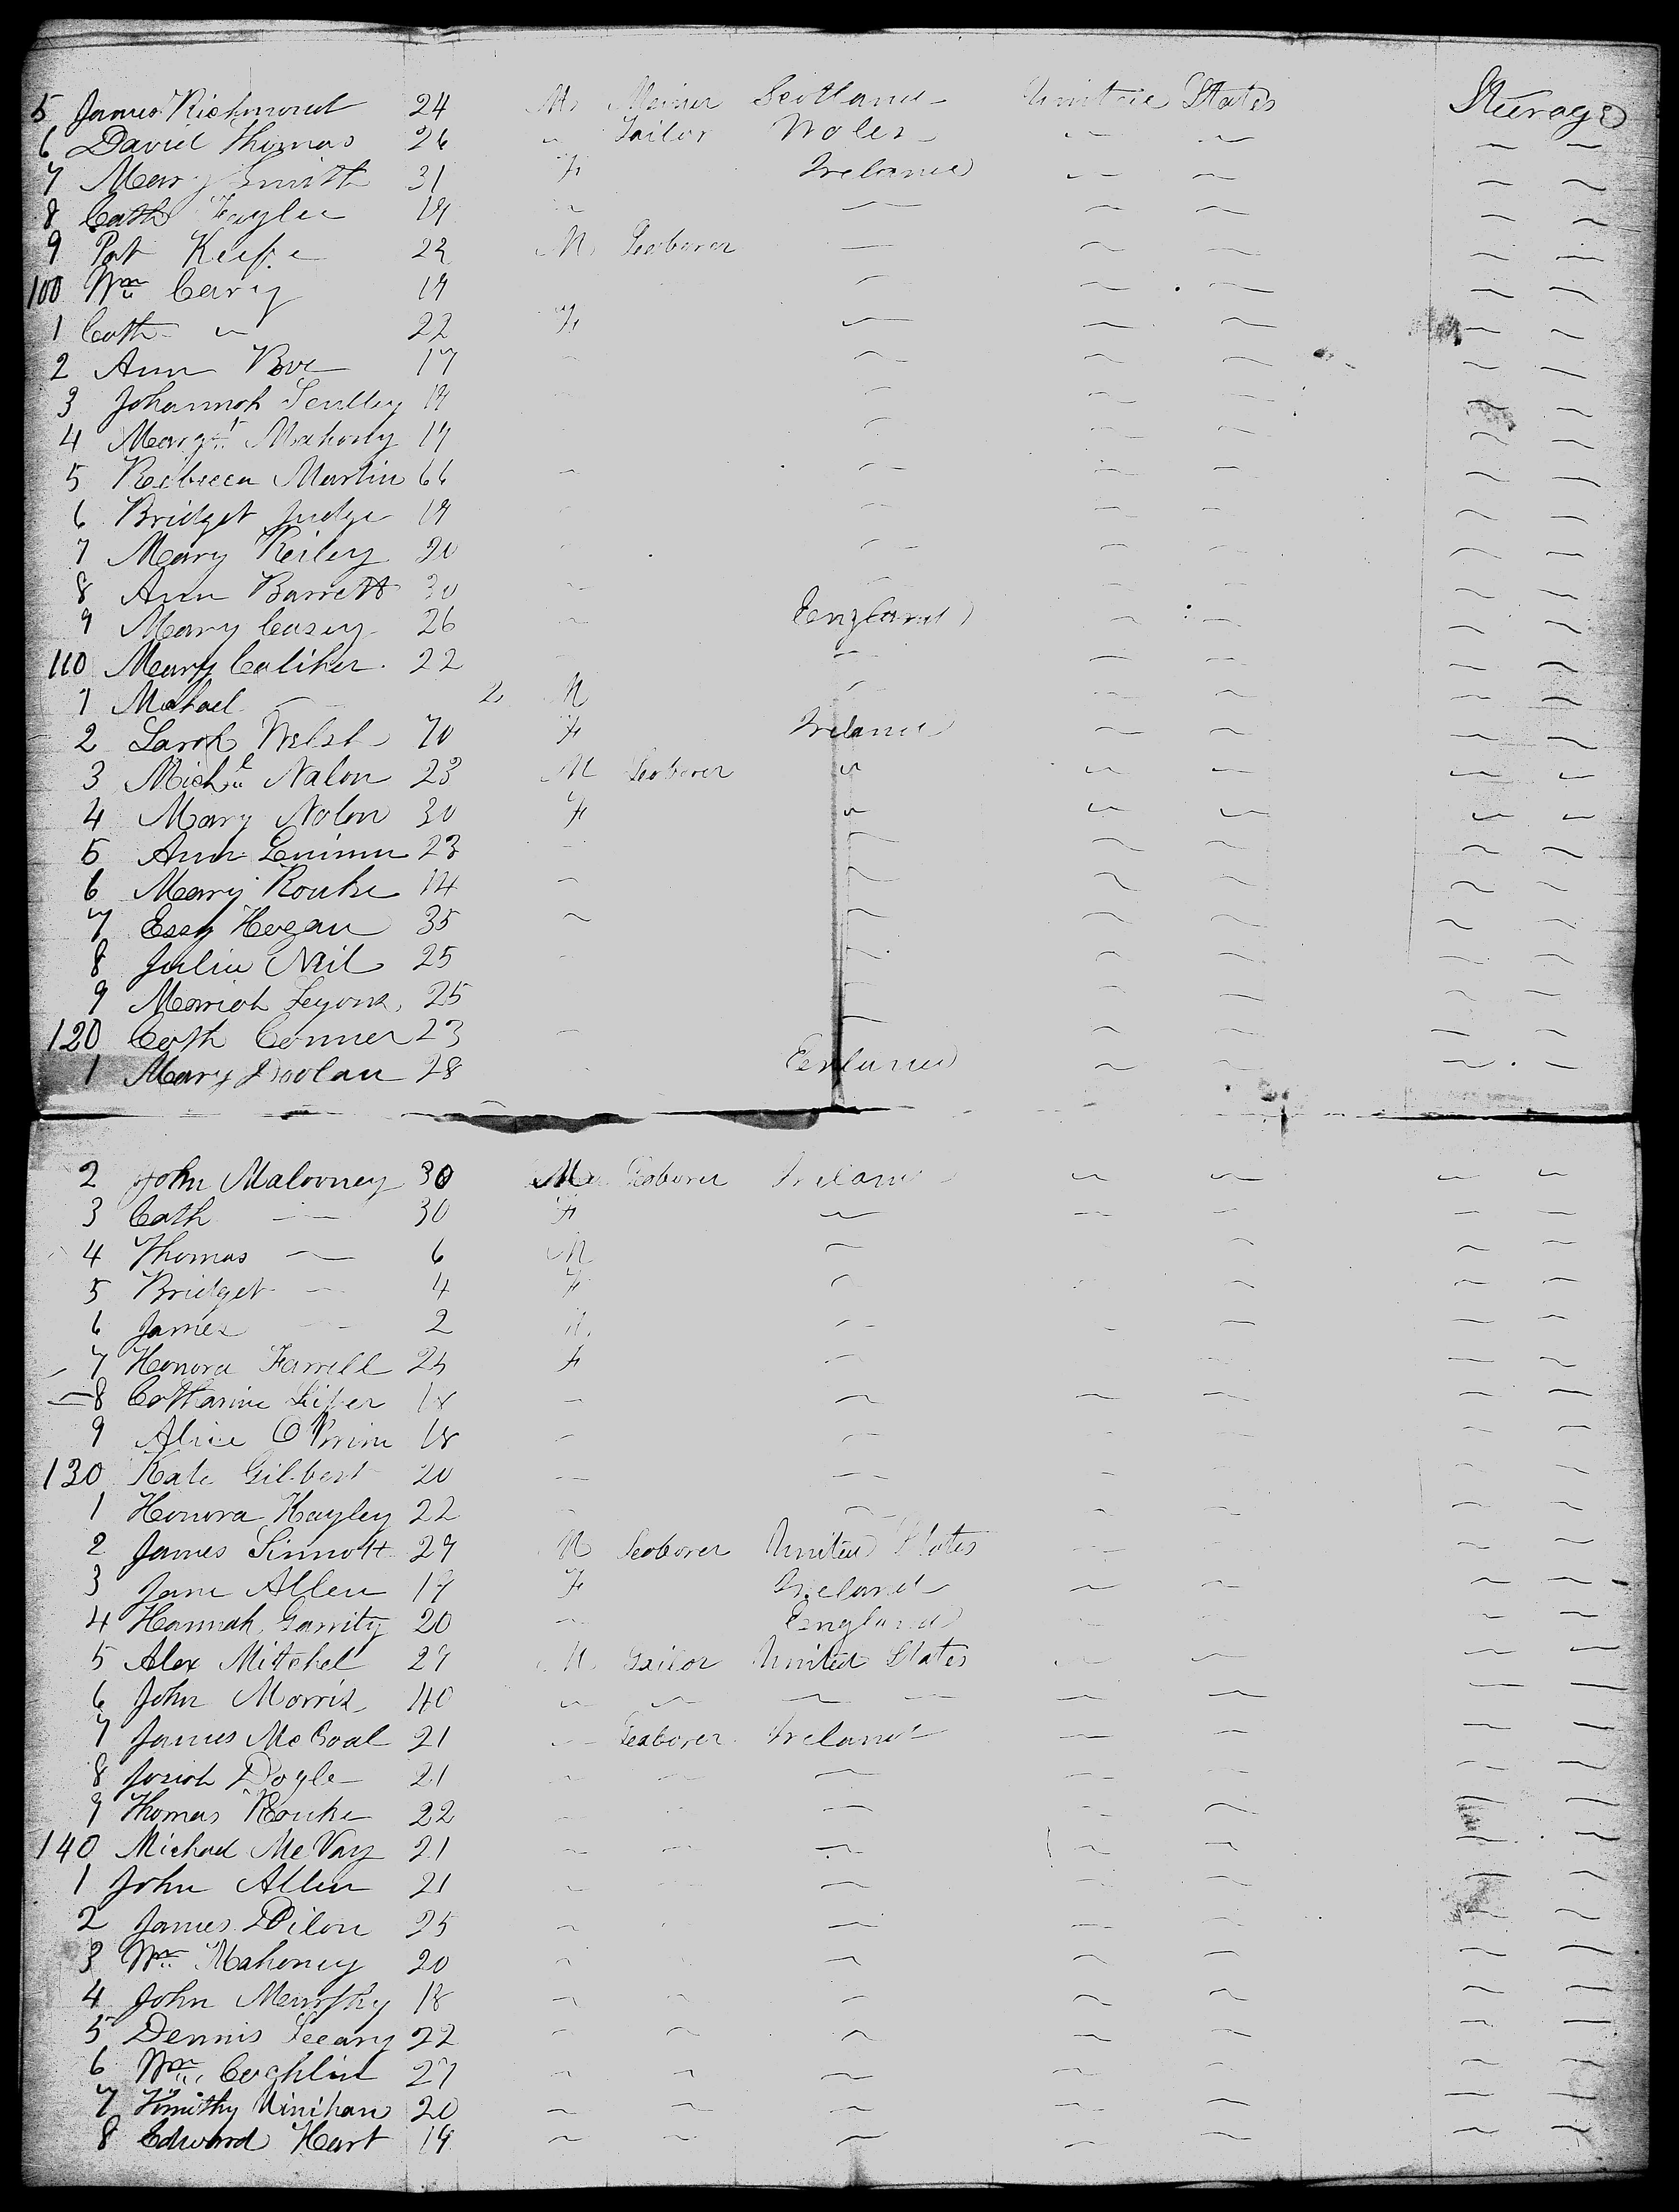 5 James Richmond 24 M. Meiner Scotland United States Steerage
6 David Thomas 26 " Tailor Wales " " " "
7 Mary Smith 31 F. Ireland " " " "
8 Cath Fayler 19 " " " " " "
9 Pat Keefe 22 M. Leaborer " " " " "
100 Wm Cary 19 " " " " "
1 Cath " 22 F. " " " " "
2 Ann Boe 17 " " " " " "
3 Johannah Sculley 19 " " " " "
4 Margt Mahony 19 " " " " "
5 Rebecca Martin 66 " " " " " "
6 Bridget Judge 19 " " " " " "
7 Mary Reiley 20 " " " " " "
8 Ann Barrett 30 " " " " " "
9 Mary Casey 26 " England " " " "
110 Mary Caliher 22 " " " " " "
1 Michael " 2 M " " " " "
2 Sarah Welsh 70 F. Ireland " " " "
3 Michl Nalon 23 M Leaborer " " " " "
4 Mary Nolon 30 F. " " " " "
5 Ann 23 " " " " " "
6 Mary Rourke 14 " " " " " "
7 Essy Hogan 35 " " " " " "
8 Julia Neil 25 " " " " " "
9 Mariah Leyons 25 " " " " "
120 Cath Conner 23 " " " " " "
1 Mary Doolan 28 " England " " " "
2 John Malooney 30 M Leaborer Ireland " " " "
3 Cath " 30 F. " " " " "
4 Thomas " 6 M " " " "
5 Bridget " 4 F. " " " " "
6 James " 2 M. " " " " "
7 Honora Farrell 25 F. " " " "
8 Catharine 18 " " " " " "
9 Alice O'Brine 18 " " " " " "
130 Kate Gilbert 20 " " " " " "
1 Honora Kayley 22 " " " " " "
2 James Sinnott 29 M Leaborer United States " " " "
3 Jane Allen 19 F. Ireland " " " "
4 Hannah Garrity 20 " England " " " "
5 Alex Mitchel 29 M. Tailor United States " " " "
6 John Morris 40 " " " " " " " "
7 James McCoal 21 " Leaborer Ireland " " " "
8 Josiah Doyle 21 " " " " " " "
9 Thomas Rourke 22 " " " " " "
140 Michael McVay 21 " " " " " " "
1 John Allen 21 " " " " " "
2 James Dilon 25 " " " " " "
3 Wm Mahoney 20 " " " " " "
4 John Murphy 18 " " " " " " "
5 Dennis Leeary 22 " " " " " " "
6 Wm Coghlin 27 " " " " " " "
7 Timithy Uinihan 20 " " " " " " "
8 Edward Hart 19 " " " " " " "